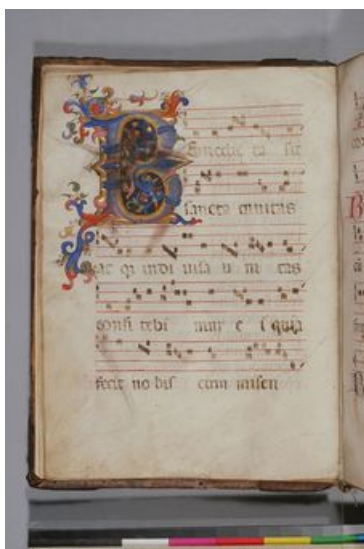 B enedic ta sit
sancta trinitas
at qz indi uisa u ni tas
confi tebi mur e i quia
fecit no bis cum miseri